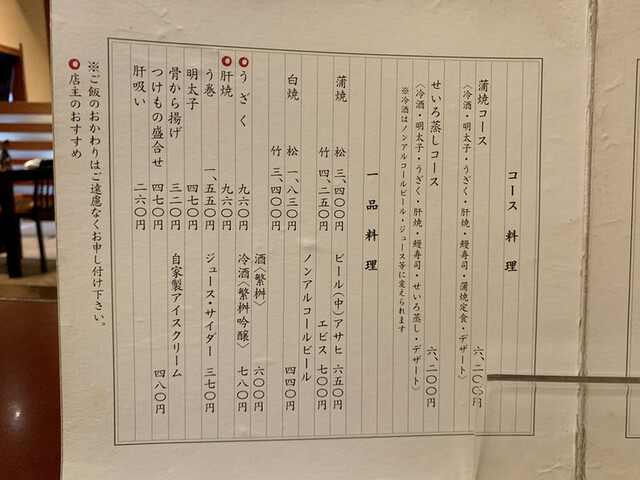 コース料理
蒲焼コース 六、二〇〇円
〈冷酒・明太子・うざく・肝焼・鰻寿司・蒲焼定食・デザート〉
せいろ蒸しコース 六、二〇〇円
〈冷酒・明太子・うざく・肝焼・鰻寿司・せいろ蒸し・デザート〉
※冷酒はノンアルコールビール・ジュース等に変えられます
一品料理
蒲焼 松 三、四〇〇円
竹 四、二五〇円
白焼 松 一、八三〇円
竹 三、四〇〇円
うざく 九六〇円
肝焼 九六〇円
う巻 一、五五〇円
明太子 四七〇円
骨から揚げ 三二〇円
つけもの盛合せ 四七〇円
肝吸い 二六〇円
ビール(中)アサヒ 六五〇円
エビス 七〇〇円
ノンアルコールビール 四四〇円
酒〈繁桝〉 六〇〇円
冷酒〈繁桝吟醸〉 七八〇円
ジュース・サイダー 三七〇円
自家製アイスクリーム 四八〇円
※ご飯のおかわりはご遠慮なくお申し付け下さい。
店主のおすすめ